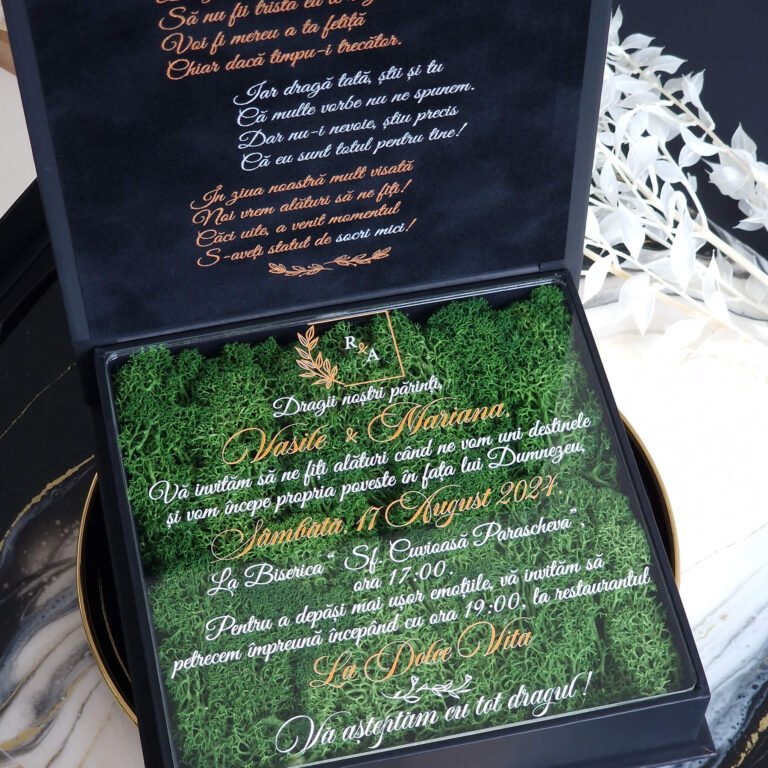 Să nu fii tristă
Voi fi mereu a ta fetiță
Chiar dacă timpu-i trecător.
Iar dragă tată, știi și tu
Că multe vorbe nu ne spunem.
Dar nu-i nevoie, știu precis
Că eu sunt totul pentru tine!
In ziua noastră mult visată
Noi vrem alături să ne fiți!
Căci uite, a venit momentul
S-aveți statut de socri mici!
R&A
Dragii noștri părinți,
Vasile & Mariana.
Vă invităm să ne fiți alături când ne vom uni destinele
și vom începe propria poveste în fața lui Dumnezeu,
Sâmbătă, 17 August 2024.
La Biserica “ Sf. Cuvioasă Parascheva”,
ora 17:00.
Pentru a depăși mai ușor emoțiile, vă invităm să
petrecem împreună începând cu ora 19:00, la restaurantul
La Dolce Vita
Vă așteptăm cu tot dragul!